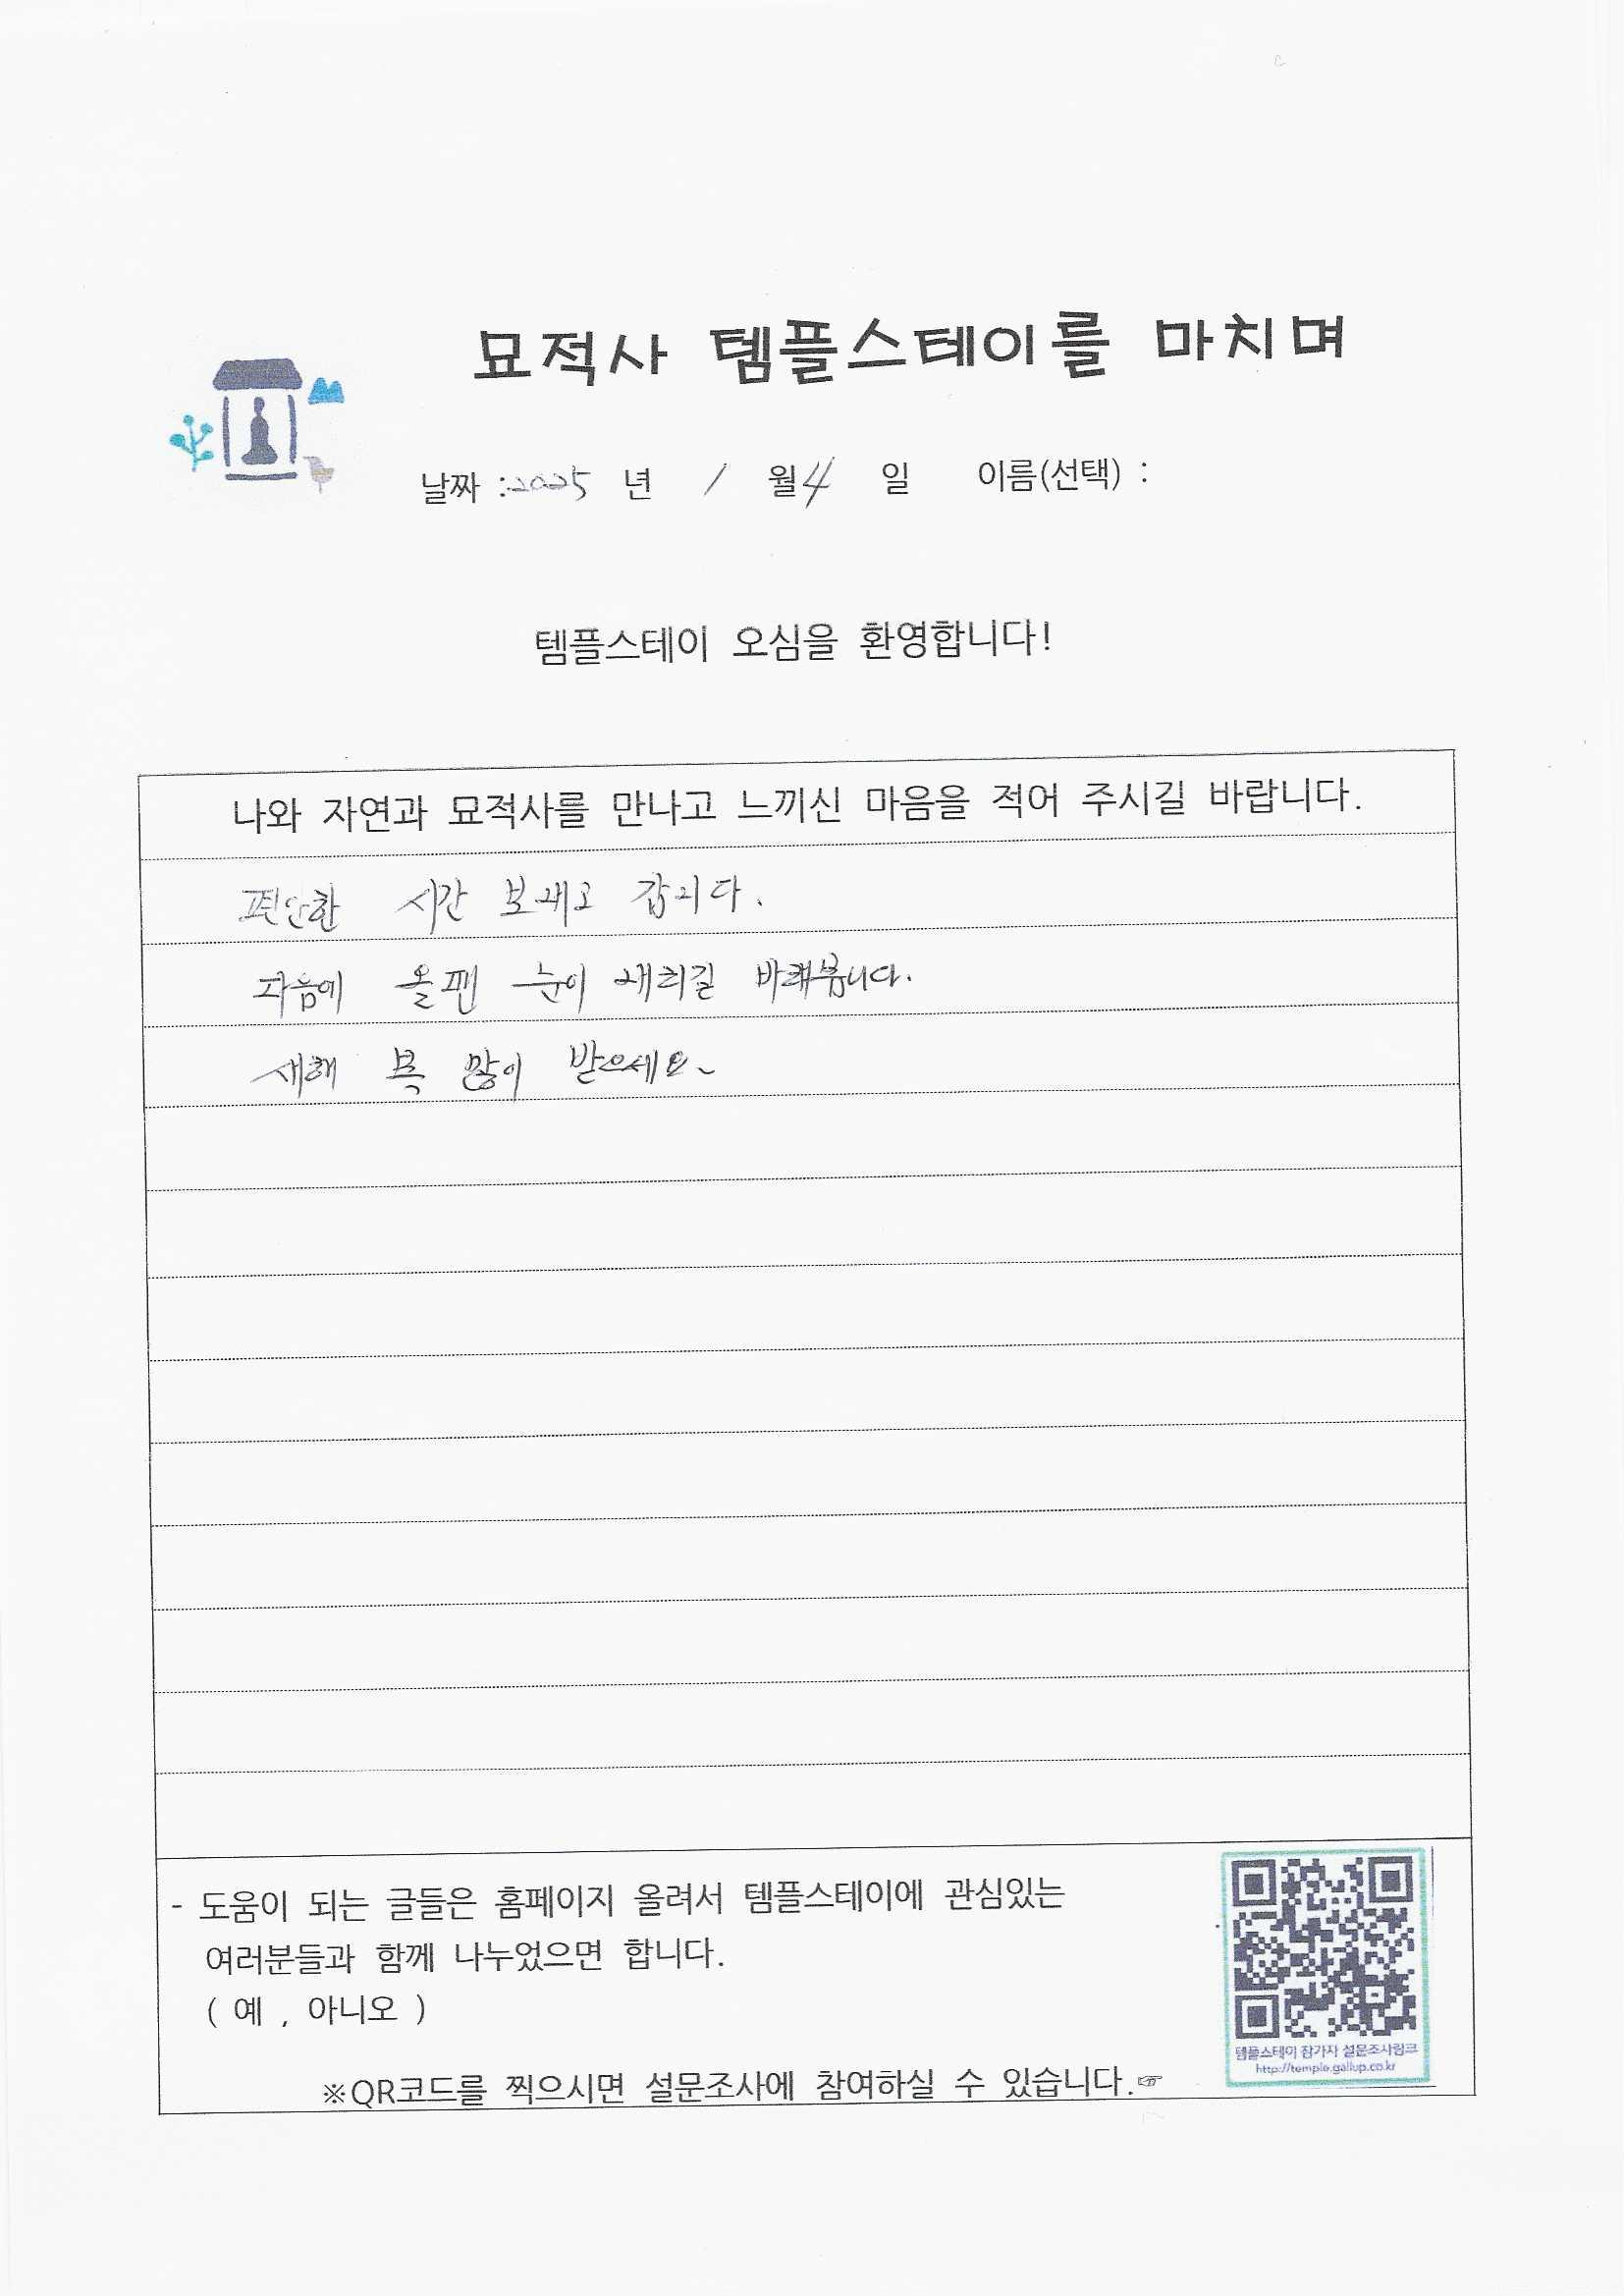 묘적사 템플스테이를 마치며
날짜 : 2025 년 1 월 4 일 이름(선택) :
템플스테이 오심을 환영합니다!
나와 자연과 묘적사를 만나고 느끼신 마음을 적어 주시길 바랍니다.
편안한 시간 보내고 갑니다.
다음에 올땐 눈이 내리길 바래봅니다.
새해 복 많이 받으세요~
- 도움이 되는 글들은 홈페이지 올려서 템플스테이에 관심있는
여러분들과 함께 나누었으면 합니다.
( 예 , 아니오 )
※QR코드를 찍으시면 설문조사에 참여하실 수 있습니다.☞
템플스테이 참가자 설문조사링크
http://temple.gallup.co.kr